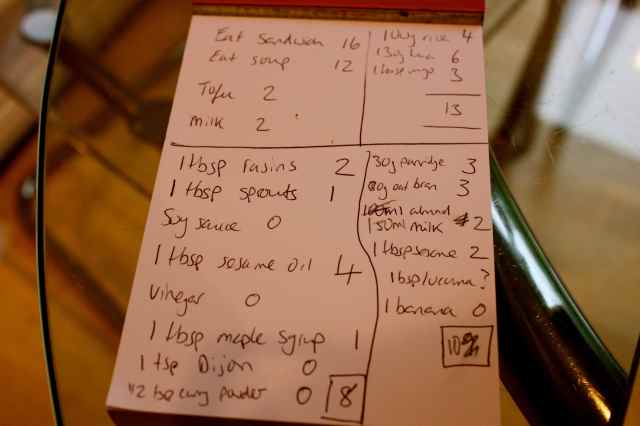 Eat Sandwich 16
Eat soup 12
Tofu 2
Milk 2
rice 4
6
1 tbsp 3
13
1 tbsp rasins 2
1 tbsp sprouts 1
Soy sauce 0
1 tbsp sesame oil 4
Vinegar 0
1 tbsp maple syrup 1
1 tsp Dijon 0
1/2 tsp curry powder 0
8
30g porridge 3
oat bran 3
almond
150ml milk 2
1 tbsp sesame 2
lucuma ?
1 banana 0
10